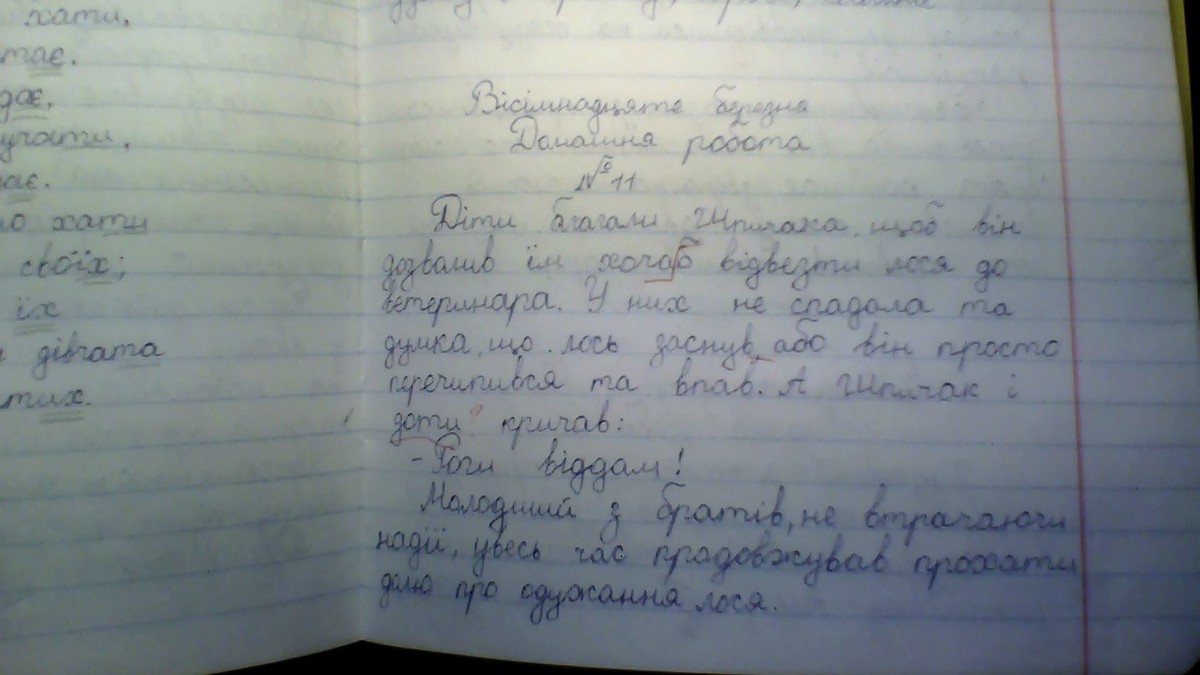 хати,
тає.
дає,
учати,
ає.
хати
своїх;
їх
дівчата
тих.
Вісімнадцяте березня
Домашня робота
№ 11
Діти благали Шпичака, щоб він
дозволив їм хочаб відвезти лося до
ветеринара. У них не спадала та
думка, що лось заснув, або він просто
перечипився та впав. А Шпичак і
доти кричав:
- Роги віддам!
Молодший з братів, не втрачаючи
надії, увесь час прадовжував прохати
дядю про одужання лося.